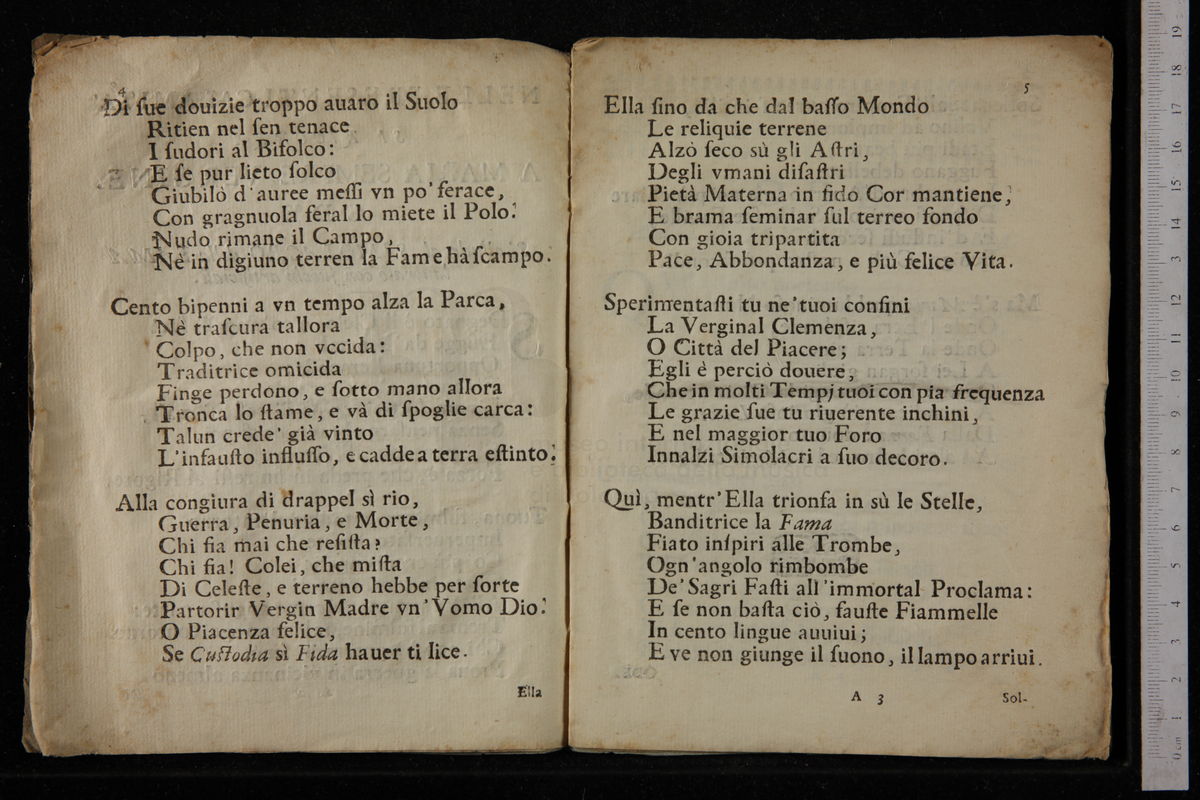 4
Di ſue douizie troppo auaro il Suolo
Ritien nel ſen tenace
I ſudori al Bifolco:
E ſe pur lieto ſolco
Giubilò d'auree meſſi vn po' ferace,
Con gragnuola feral lo miete il Polo:
Nudo rimane il Campo,
Nè in digiuno terren la Fame hà ſcampo.
Cento bipenni a vn tempo alza la Parca,
Nè traſcura tallora
Colpo, che non vccida:
Traditrice omicida
Finge perdono, e ſotto mano allora
Tronca lo ſtame, e và di ſpoglie carca:
Talun crede' già vinto
L'infauſto influſſo, e cadde a terra eſtinto:
Alla congiura di drappel sì rio,
Guerra, Penuria, e Morte,
Chi fia mai che reſiſta?
Chi fia! Colei, che miſta
Di Celeſte, e terreno hebbe per ſorte
Partorir Vergin Madre vn'Vomo Dio:
O Piacenza felice,
Se Cuſtodia sì Fida hauer ti lice.
Ella
5
Ella ſino da che dal baſſo Mondo
Le reliquie terrene
Alzò ſeco sù gli Aſtri,
Degli vmani diſaſtri
Pietà Materna in fido Cor mantiene,
E brama ſeminar ſul terreo fondo
Con gioia tripartita
Pace, Abbondanza, e più felice Vita.
Sperimentaſti tu ne'tuoi confini
La Verginal Clemenza,
O Città del Piacere;
Egli è perciò douere,
Che in molti Tempj tuoi con pia frequenza
Le grazie ſue tu riuerente inchini,
E nel maggior tuo Foro
Innalzi Simolacri a ſuo decoro.
Quì, mentr'Ella trionfa in sù le Stelle,
Banditrice la Fama
Fiato inſpiri alle Trombe,
Ogn'angolo rimbombe
De'Sagri Faſti all'immortal Proclama:
E ſe non baſta ciò, fauſte Fiammelle
In cento lingue auuiui;
E ve non giunge il ſuono, il lampo arriui.
A 3
Sol-
0 cm 1 2 3 4 5 6 7 8 9 10 11 12 13 14 15 16 17 18 19